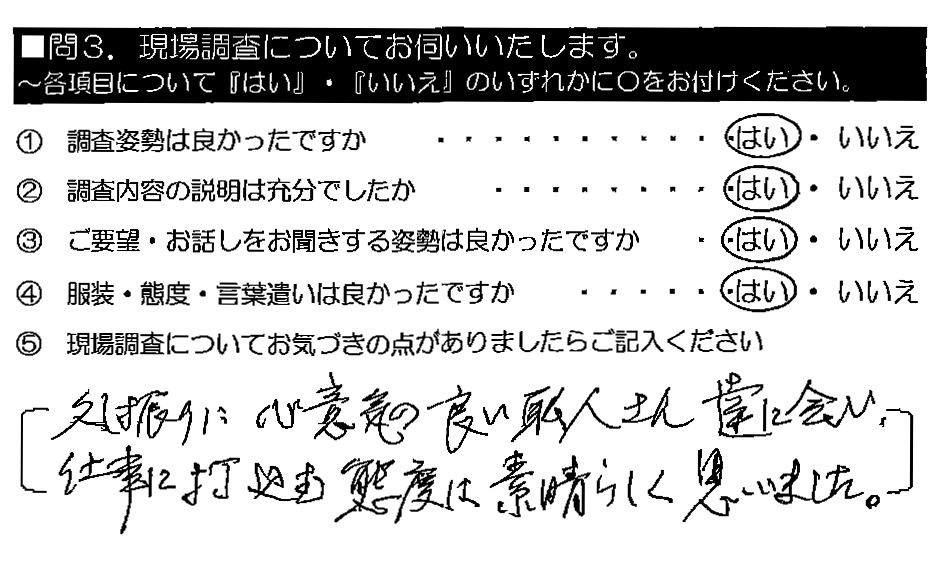 ■問3．現場調査についてお伺いいたします。
～各項目について『はい』・『いいえ』のいずれかに○をお付けください。
① 調査姿勢は良かったですか ・・・・・・・・・・・はい・いいえ
② 調査内容の説明は充分でしたか ・・・・・・・・はい・いいえ
③ ご要望・お話しをお聞きする姿勢は良かったですか ・・はい・いいえ
④ 服装・態度・言葉遣いは良かったですか ・・・・・・はい・いいえ
⑤ 現場調査についてお気づきの点がありましたらご記入ください
久し振りに心意気の良い職人さん達に会い、
仕事に打込む態度は素晴らしく思いました。